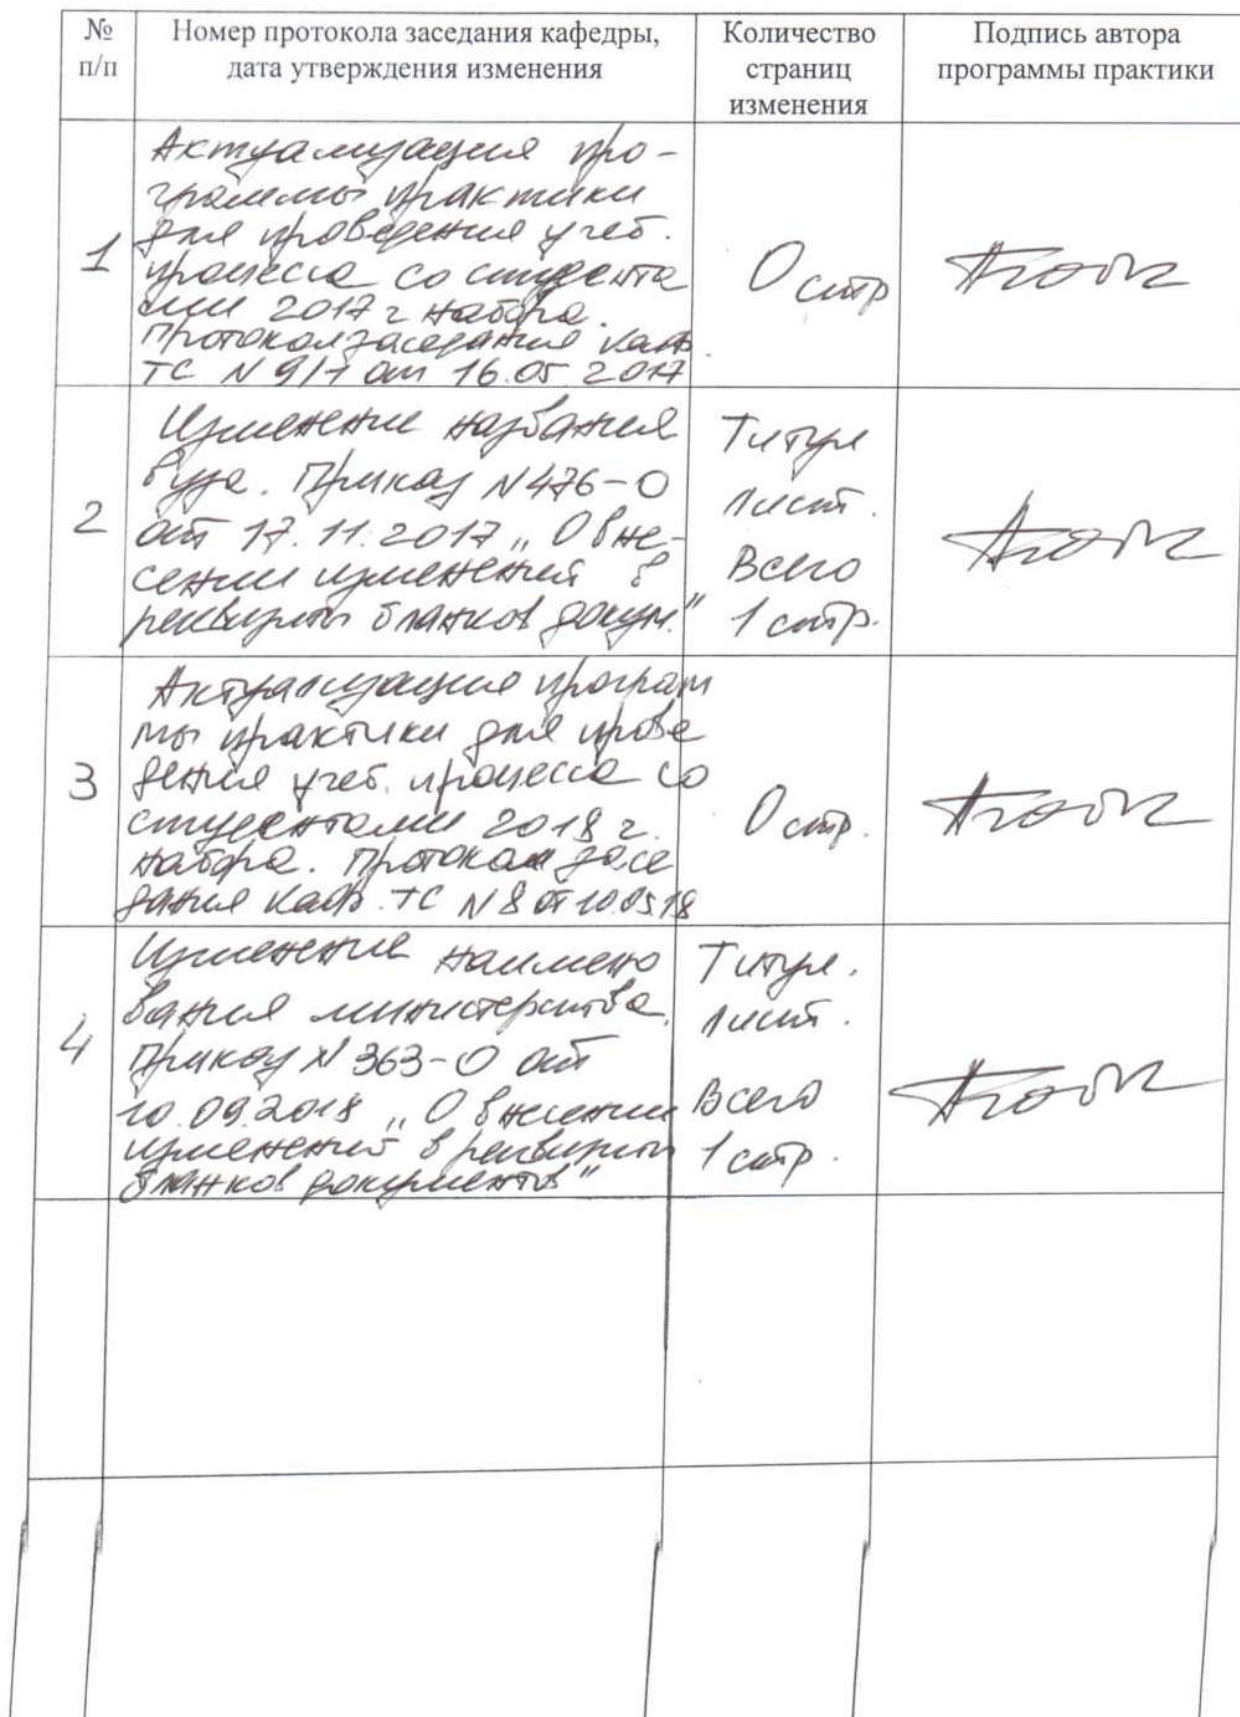 № п/п
Номер протокола заседания кафедры,
дата утверждения изменения
Количество
страниц
изменения
Подпись автора
программы практики
1
Актуализация про-
граммы практики
для проведения учеб.
процесса со студента
ми 2017 г набора.
Протокол заседания каф
ТС N 9/1 от 16.05 2017
0 стр
2
Изменение названия
вуза. Приказ N 476-О
от 17.11.2017 „О вне-
сении изменений в
реквизиты бланков докум."
Титул
лист.
Всего
1 стр.
3
Актуализация програм
мы практики для прове
дения учеб. процесса со
студентами 2018 г.
набора. Протокол засе
дания каф. ТС N 8 от 10.05.18
0 стр.
4
Изменение наимено
вания министерства.
Приказ N 363-О от
10.09.2018 „О внесении
изменений в реквизиты
бланков документов"
Титул.
лист.
Всего
1 стр.